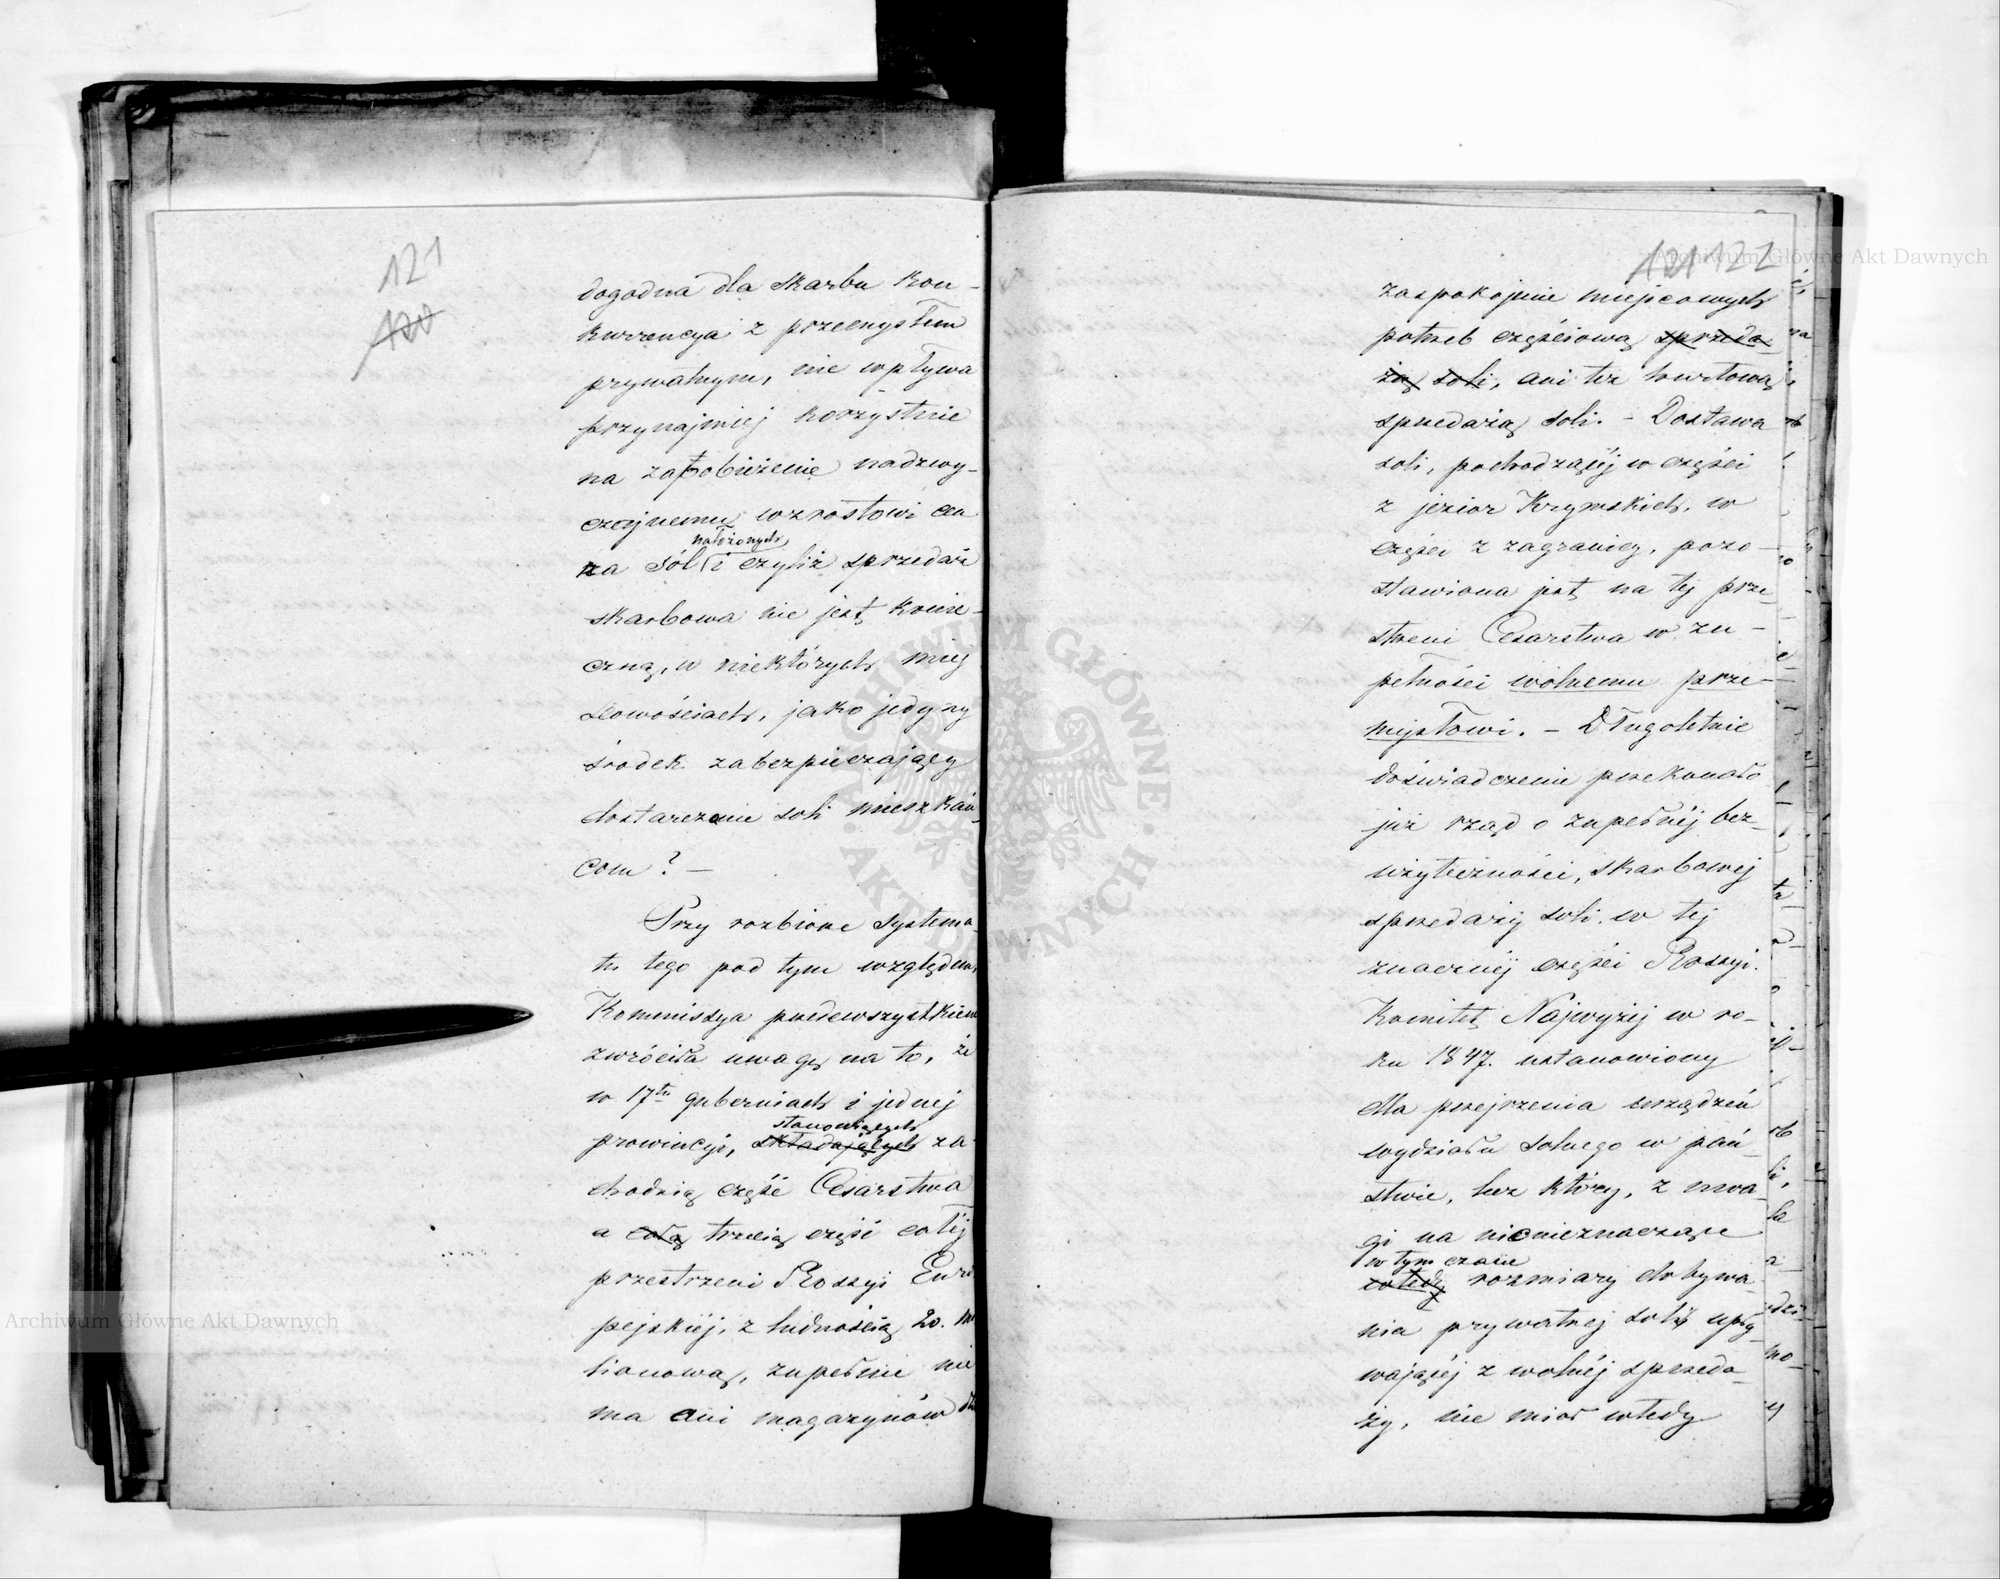 121
120
dogodna dla skarbu kon-
kurrencya z przemysłem
prywatnym, nie wpływa
przynajmniej korzystnie
na zapobieżenie nadzwy-
czajnemu wzrostowi cen
nałożonych
na sól i czyliż sprzedaż
skarbowa nie jest konie-
czną, w niektórych miej
scowościach, jako jedyny
środek zabezpieczający
dostarczenie soli mieszkań-
com? -
Przy rozbiorze systema-
tu tego pod tym względem,
Kommissya przedewszystkiem
zwróciła uwagę na to, że
w 17tu guberniach i jednej
stanowiących
prowincyi, składających za-
chodnią część Cesarstwa
a całą trzecią część całej
przestrzeni Rossyi Euro
pejskiéj, z ludnością 20. mi
lionową, zupełnie nie
ma ani magazynów dla
121 122
zaspokojenie miejscowych
potrzeb częściową sprzeda-
żą soli, ani też hurtową
sprzedażą soli. - Dostawa
soli, pochodzącéj w części
z jezior Krymskich, w
części z zagranicy, pozo-
stawiona jest na tej prze-
strzeni Cesarstwa w zu-
pełności wolnemu prze-
mysłowi. - Długoletnie
doświadczenie przekonało
już rząd o zupełnéj bez-
użyteczności, skarbowej
sprzedaży soli w tej
znacznéj części Rossyi.
Komitet Najwyżej w ro-
ku 1847. ustanowiony
dla przejrzenia urządzeń
wydziału solnego w pań-
stwie, lecz który, z uwa-
gi na nic nieznaczące
w tym czasie
wtedy rozmiary dobywa-
nia prywatnej soli
wającéj z wolnéj sprzeda-
ży, nie miał wtedy
Archiwum Główne Akt Dawnych
Archiwum Główne Akt Dawnych
ARCHIWUM GŁÓWNE · AKT DAWNYCH ·